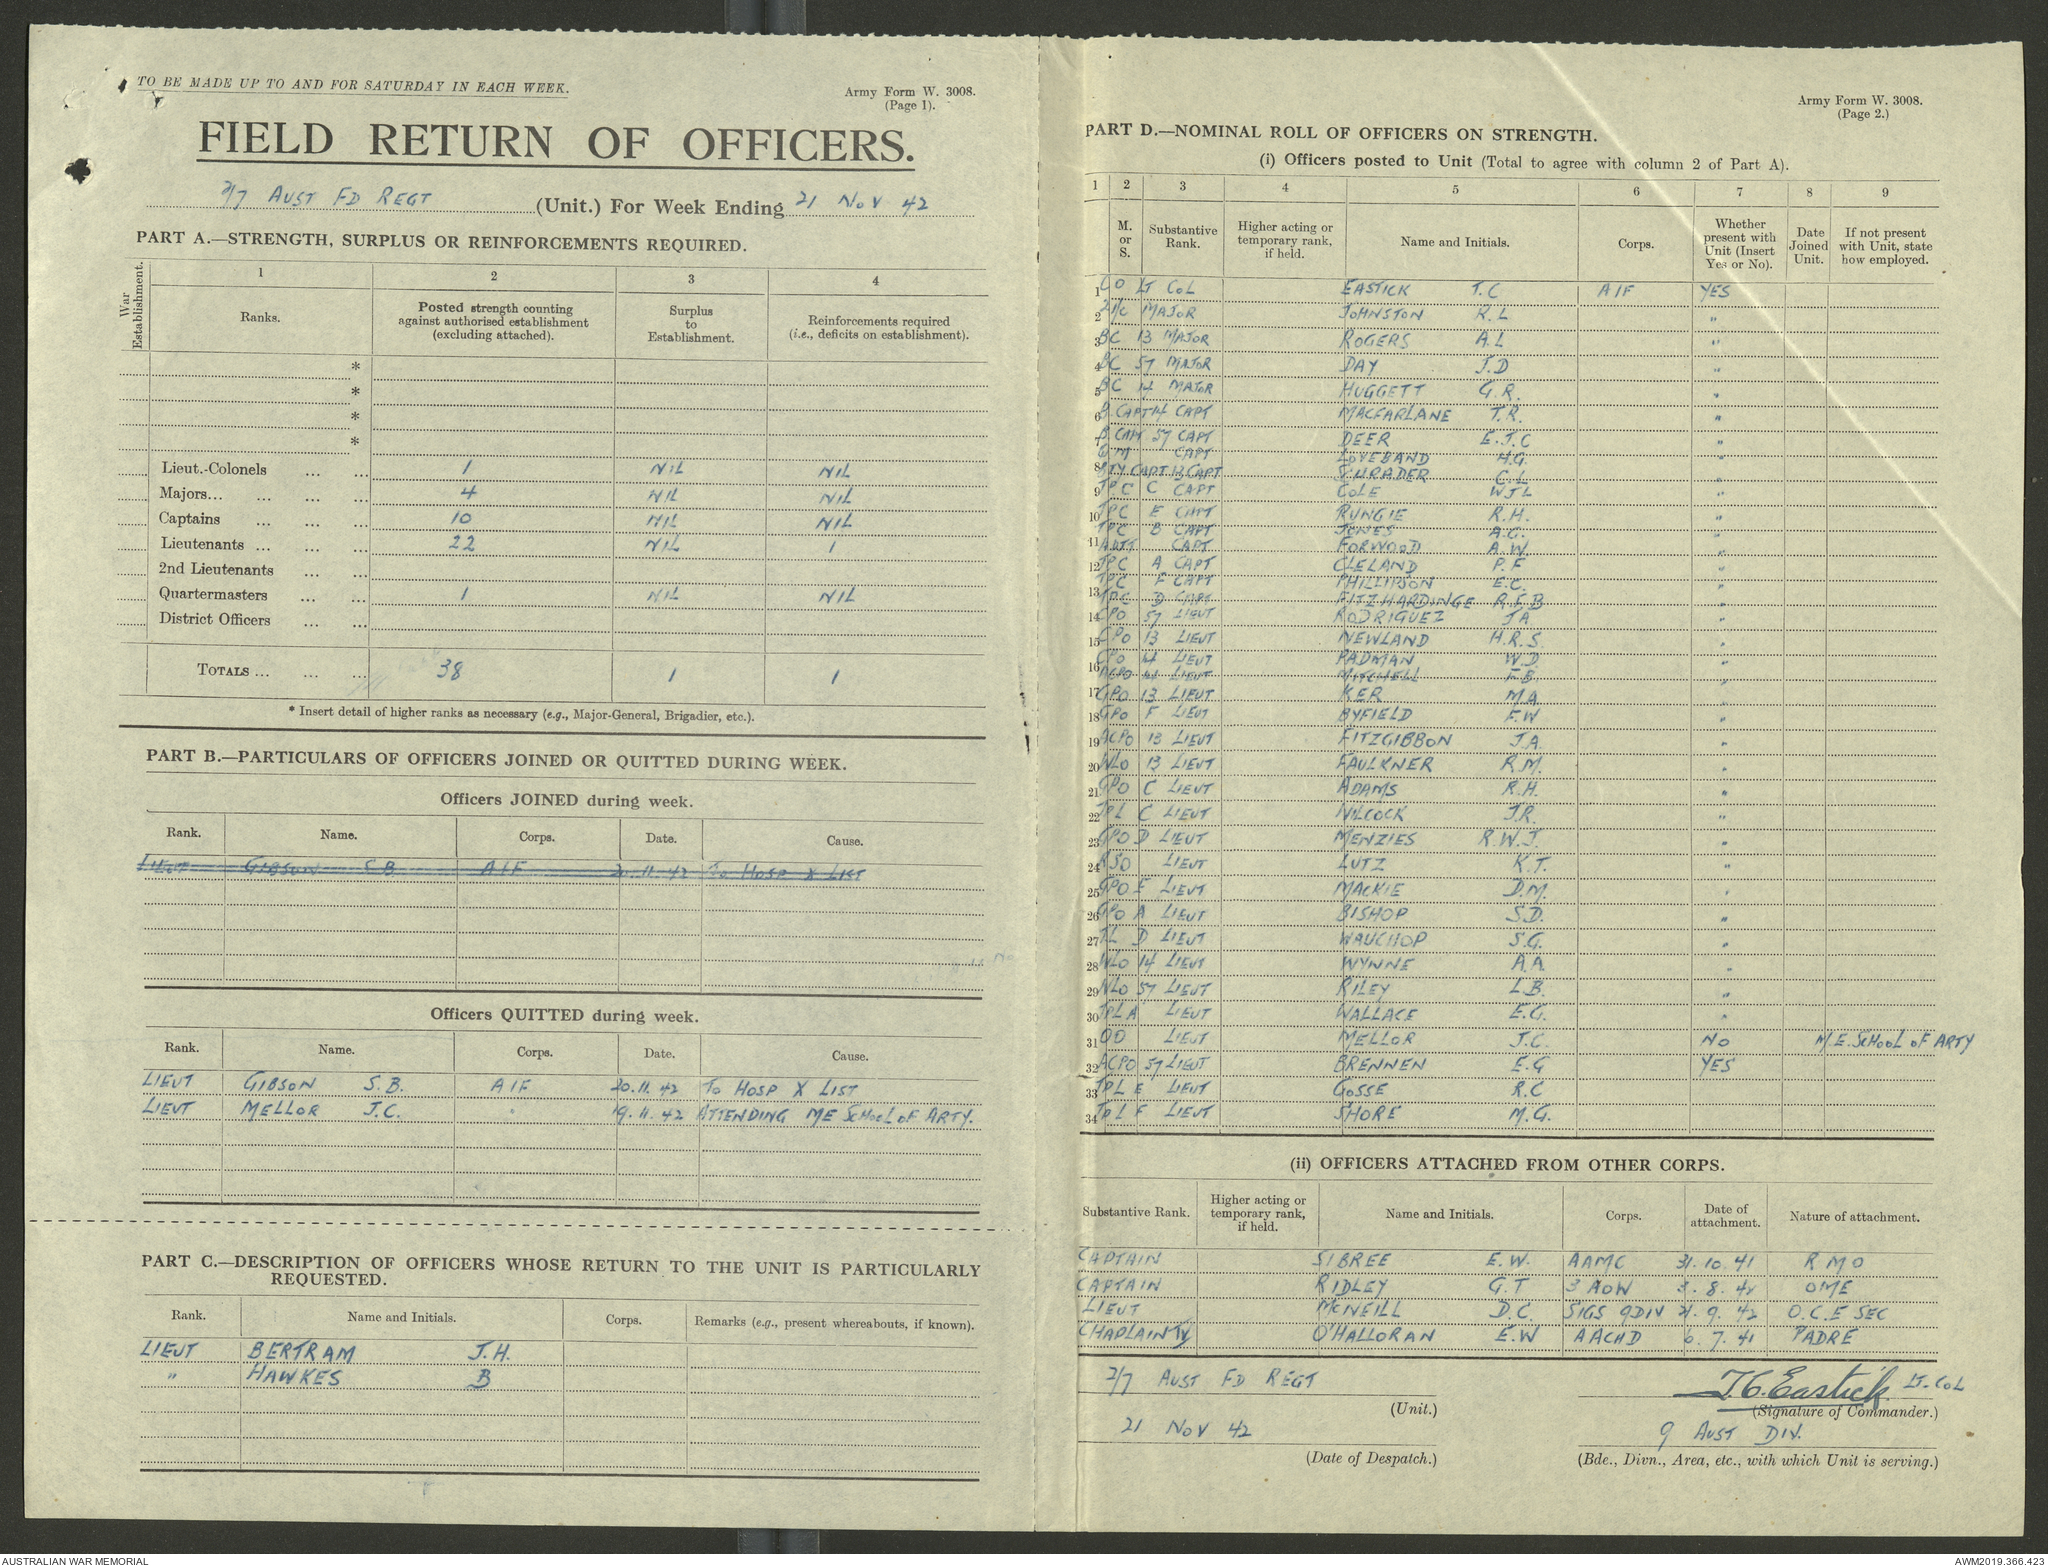 TO BE MADE UP TO AND FOR SATURDAY IN EACH WEEK.
Army Form W. 3008.
(Page 1).
FIELD RETURN OF OFFICERS.
2/7 AUST FD REGT (Unit.) For Week Ending 21 NOV 42
PART A.—STRENGTH, SURPLUS OR REINFORCEMENTS REQUIRED.
War Establishment.
1 2 3 4
Ranks. Posted strength counting against authorised establishment (excluding attached). Surplus to Establishment. Reinforcements required (i.e., deficits on establishment).
*
*
*
*
Lieut.-Colonels ... ... 1 NIL NIL
Majors... ... ... ... 4 NIL NIL
Captains ... ... ... 10 NIL NIL
Lieutenants ... ... ... 22 NIL 1
2nd Lieutenants ... ...
Quartermasters ... ... 1 NIL NIL
District Officers ... ...
TOTALS ... ... ... 38 1 1
* Insert detail of higher ranks as necessary (e.g., Major-General, Brigadier, etc.).
PART B.—PARTICULARS OF OFFICERS JOINED OR QUITTED DURING WEEK.
Officers JOINED during week.
Rank. Name. Corps. Date. Cause.
LIEUT GIBSON S B AIF 20.11.42 TO HOSP X LIST
Officers QUITTED during week.
Rank. Name. Corps. Date. Cause.
LIEUT GIBSON S.B. AIF 20.11.42 TO HOSP X LIST
LIEUT MELLOR J.C. " 19.11.42 ATTENDING ME SCHOOL OF ARTY.
PART C.—DESCRIPTION OF OFFICERS WHOSE RETURN TO THE UNIT IS PARTICULARLY
REQUESTED.
Rank. Name and Initials. Corps. Remarks (e.g., present whereabouts, if known).
LIEUT BERTRAM J.H.
" HAWKES B
Army Form W. 3008.
(Page 2.)
PART D.—NOMINAL ROLL OF OFFICERS ON STRENGTH.
(i) Officers posted to Unit (Total to agree with column 2 of Part A).
1 2 3 4 5 6 7 8 9
M. or S. Substantive Rank. Higher acting or temporary rank, if held. Name and Initials. Corps. Whether present with Unit (Insert Yes or No). Date Joined Unit. If not present with Unit, state how employed.
1 CO LT COL EASTICK T.C AIF YES
2 2I/C MAJOR JOHNSTON K.L "
3 BC 13 MAJOR ROGERS A.L "
4 BC 57 MAJOR DAY J.D "
5 BC 14 MAJOR HUGGETT G.R. "
6 B CAPT 14 CAPT MACFARLANE T.R. "
7 B CAPT 57 CAPT DEER E.J.C "
QM CAPT LOVEBAND H.G. "
8 BTY CAPT 13 CAPT SCHRADER C.L "
9 TPC C CAPT COLE WJL "
10 TPC E CAPT RUNGIE R.H. "
TPC B CAPT JONES A.G. "
11 ADJT CAPT FORWOOD A.W. "
12 TPC A CAPT CLELAND P.F "
TPC F CAPT PHILLIPSON E.C. "
13 TPC D CAPT FITZHARDINGE R.F.B "
14 CPO 57 LIEUT RODRIGUEZ J A "
15 CPO 13 LIEUT NEWLAND H.R.S. "
16 CPO 14 LIEUT PADMAN W.D. "
ACPO 14 LIEUT MITCHELL F B "
17 GPO 13 LIEUT KER M A "
18 GPO F LIEUT BYFIELD F.W "
19 ACPO 13 LIEUT FITZGIBBON J.A. "
20 WLO 13 LIEUT FAULKNER R.M. "
21 GPO C LIEUT ADAMS R.H. "
22 TPL C LIEUT NILCOCK J.R. "
23 GPO D LIEUT MENZIES R.W.J. "
24 RSO LIEUT LUTZ K.T. "
25 GPO E LIEUT MACKIE D.M. "
26 GPO A LIEUT BISHOP S.D. "
27 TL D LIEUT WAUCHOP S.G. "
28 WLO 14 LIEUT WYNNE A.A "
29 WLO 57 LIEUT RILEY L.B. "
30 TPL A LIEUT WALLACE E.G. "
31 OD LIEUT MELLOR J.C. NO M.E. SCHOOL OF ARTY
32 ACPO 57 LIEUT BRENNEN E.G YES
33 TPL E LIEUT GOSSE R.C
34 TPL F LIEUT SHORE M.G.
(ii) OFFICERS ATTACHED FROM OTHER CORPS.
Substantive Rank. Higher acting or temporary rank, if held. Name and Initials. Corps. Date of attachment. Nature of attachment.
CAPTAIN SIBREE E.W. AAMC 31.10.41 R M O
CAPTAIN RIDLEY G.T 3 AOW 3.8.42 OME
LIEUT MCNEILL D.C. SIGS 9DIV 21.9.42 O.C. E SEC
CHAPLAIN IV O'HALLORAN E.W AACHD 6.7.41 PADRE
2/7 AUST FD REGT T.C. Eastick LT-COL
(Unit.) (Signature of Commander.)
21 NOV 42 9 AUST DIV.
(Date of Despatch.) (Bde., Divn., Area, etc., with which Unit is serving.)
AUSTRALIAN WAR MEMORIAL AWM2019.366.423